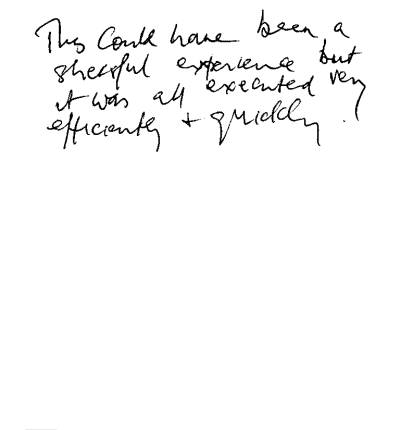 This could have been a
stressful experience but
it was all executed very
efficiently + quickly.